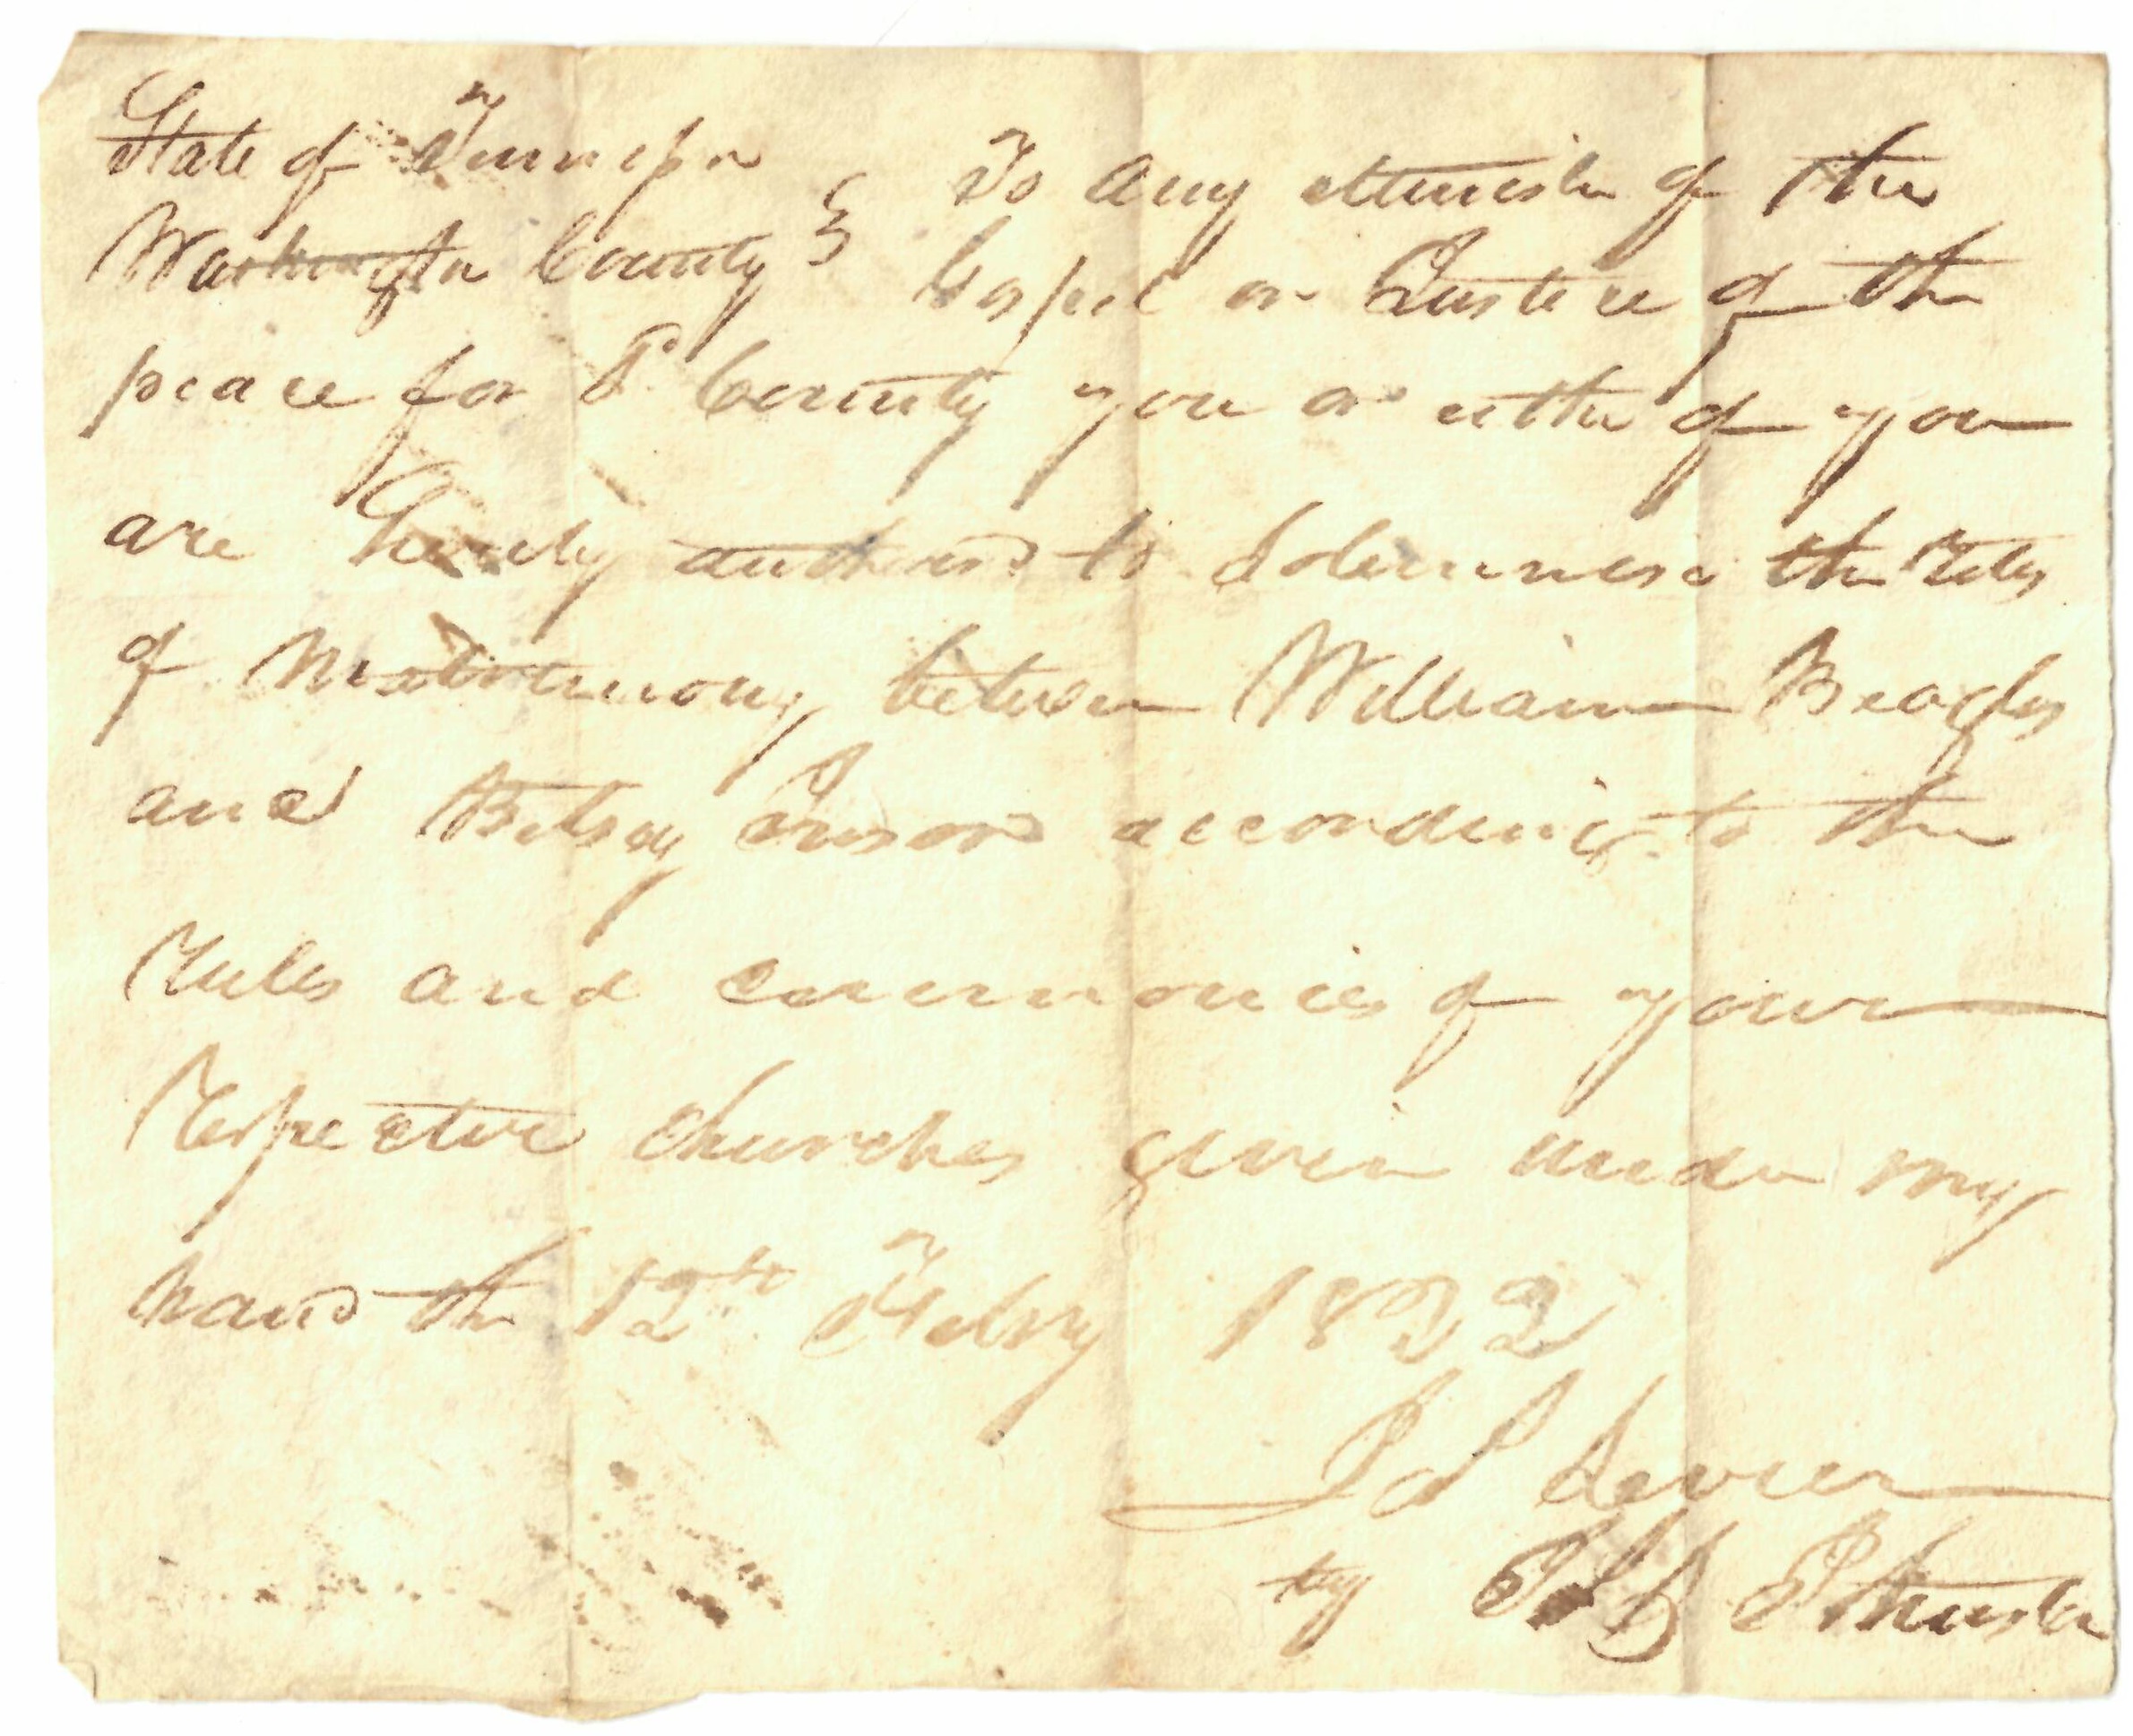 State of Tennessee
Washington County } To any Minister of the
Gospel or Justice of the
peace for Sd County you or either of you
are hereby authorisd to Solemnise the Rites
of Matrimony between William Beagles
and Betsey according to the
Rules and ceremonies of your
Respective churches given under my
hand the 12th Febry 1822
J S Sevier
by